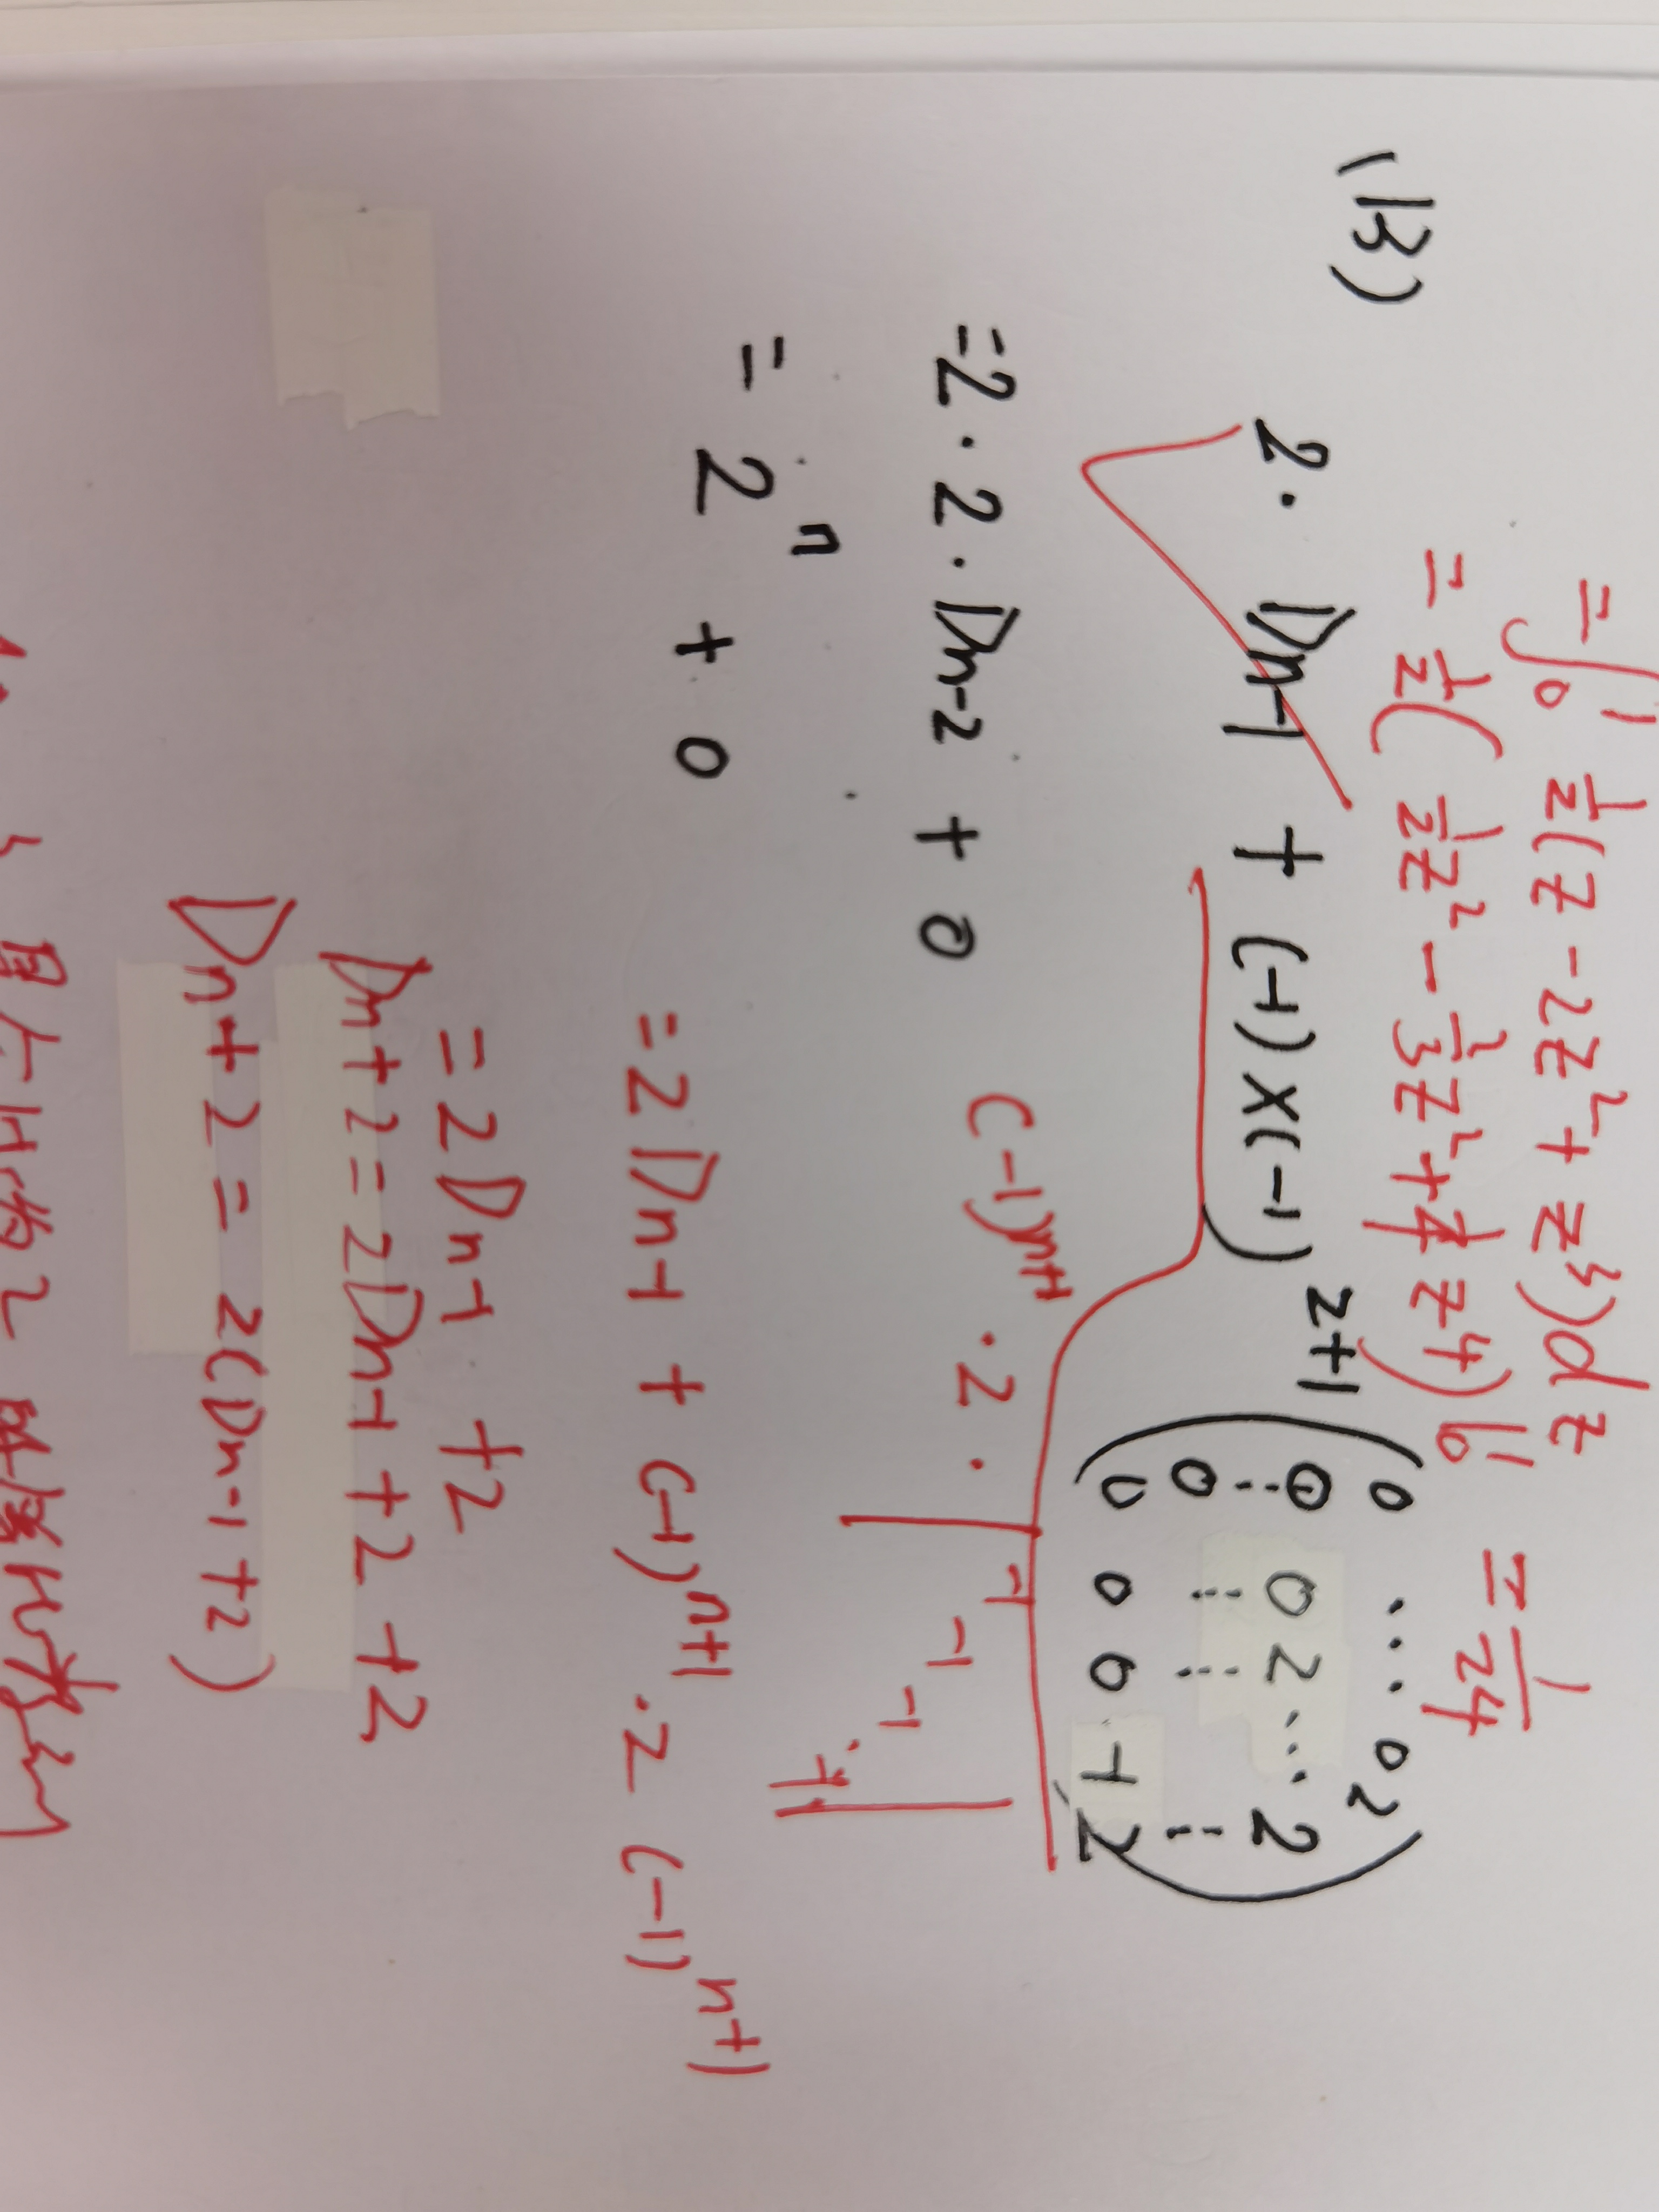 = ∫₀¹ 1/2 (z - 2z² + z³) dz
= 1/2 ( 1/2 z² - 2/3 z² + 1/4 z⁴ ) |₀¹ = 1/24
(13) 2 · Dn-1 + (-1)×(-1)²⁺¹
0 ... 0 2
0 0 2 ... 2
0 ⋮ ⋮ ⋮
0 0 0 -1 2
= 2 · 2 · Dn-2 + 0
(-1)ⁿ⁺¹ · 2 · | -1 -1 -1 ⋱ -1 |
= 2ⁿ + 0
= 2Dn-1 + (-1)ⁿ⁺¹ · 2 (-1)ⁿ⁺¹
= 2Dn-1 + 2
Dn+2 = 2Dn-1 + 2 + 2
Dn+2 = 2(Dn-1+2)